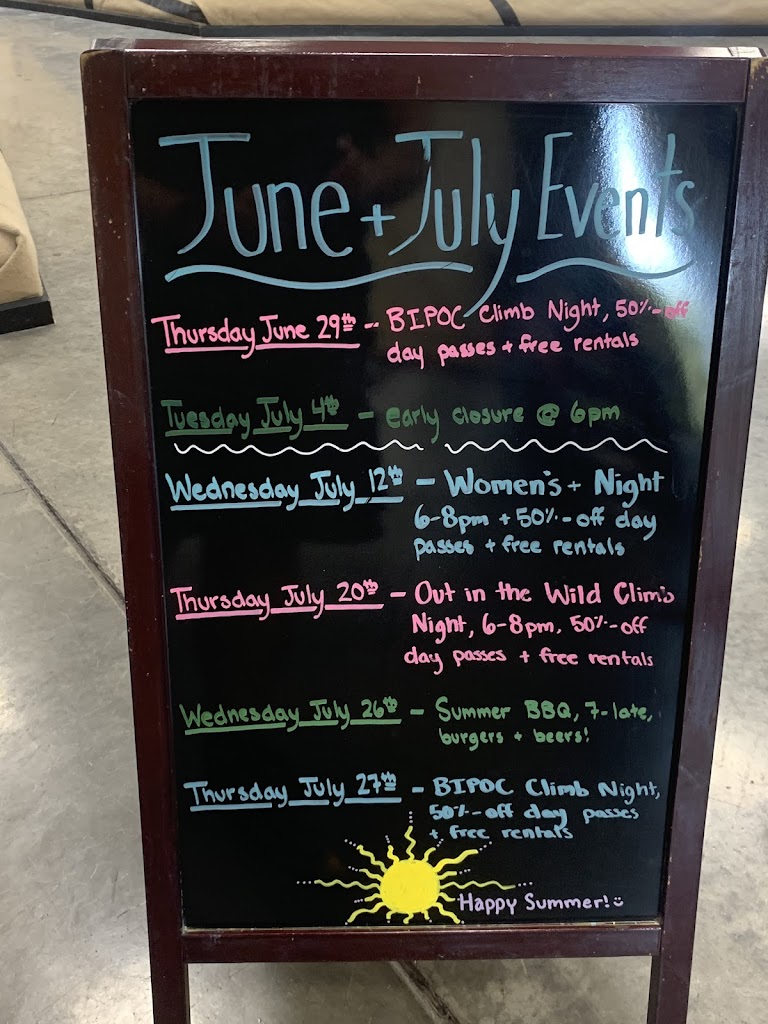 June + July Events
Thursday June 29th - BIPOC Climb Night, 50%-off
day passes + free rentals
Tuesday July 4th - early closure @ 6pm
Wednesday July 12th - Women's + Night
6-8pm + 50%-off day
passes + free rentals
Thursday July 20th - Out in the Wild Climb
Night, 6-8pm, 50%-off
day passes + free rentals
Wednesday July 26th - Summer BBQ, 7-late,
burgers + beers!
Thursday July 27th - BIPOC Climb Night,
50%-off day passes
+ free rentals
Happy Summer!